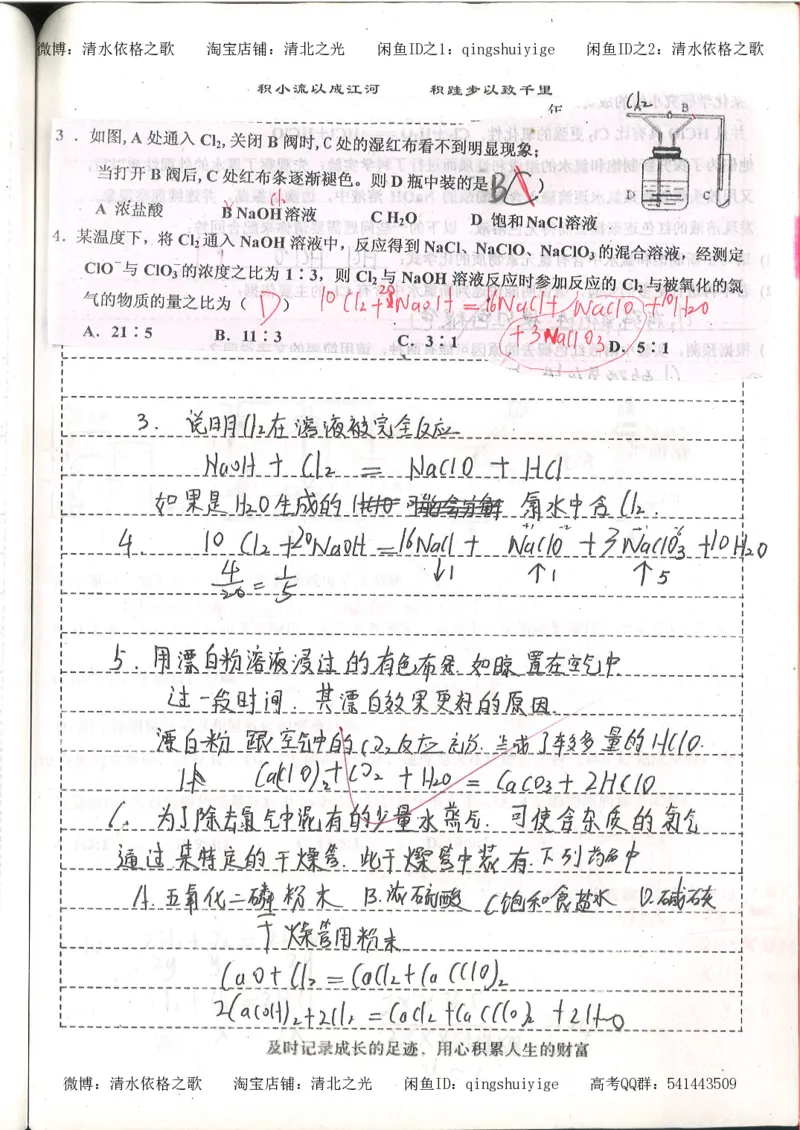 微博：清水依格之歌 淘宝店铺：清北之光 闲鱼ID之1：qingshuiyige 闲鱼ID之2：清水依格之歌
积小流以成江河 积跬步以致千里
年
Cl₂
B
3．如图，A 处通入 Cl₂，关闭 B 阀时，C 处的湿红布看不到明显现象；
当打开 B 阀后，C 处红布条逐渐褪色。则 D 瓶中装的是（B ）
D
A 浓盐酸 B NaOH 溶液 C H₂O D 饱和 NaCl 溶液
4．某温度下，将 Cl₂ 通入 NaOH 溶液中，反应得到 NaCl、NaClO、NaClO₃ 的混合溶液，经测定
ClO⁻ 与 ClO₃⁻ 的浓度之比为 1∶3，则 Cl₂ 与 NaOH 溶液反应时参加反应的 Cl₂ 与被氧化的氯
气的物质的量之比为（ D ） 10Cl₂+20NaOH=16NaCl+NaClO+10H₂O
+3NaClO₃
A．21∶5 B．11∶3 C．3∶1 D．5∶1
3. 说明Cl₂在溶液被完全反应
NaOH + Cl₂ = NaClO + HCl
如果是H₂O生成的 氯水中含Cl₂.
4. 10Cl₂+20NaOH=16NaCl+NaClO+3NaClO₃+10H₂O
4/20=1/5 ↓1 ↑1 ↑5
5. 用漂白粉溶液浸过的有色布条 如晾置在空气中
过一段时间，其漂白效果更好的原因.
漂白粉跟空气中的CO₂反应充分 生成了较多量的HClO.
Ca(ClO)₂+CO₂+H₂O=CaCO₃+2HClO
6. 为了除去氯气中混有的少量水蒸气. 可使含杂质的氯气
通过某特定的干燥管. 此干燥管中装有下列物质中
A.五氧化二磷粉末 B.浓硫酸 C饱和食盐水 D.碱石灰
干燥管用粉末
CaO+Cl₂=CaCl₂+Ca(ClO)₂
2Ca(OH)₂+2Cl₂=CaCl₂+Ca(ClO)₂+2H₂O
及时记录成长的足迹．用心积累人生的财富
微博：清水依格之歌 淘宝店铺：清北之光 闲鱼ID：qingshuiyige 高考QQ群：541443509